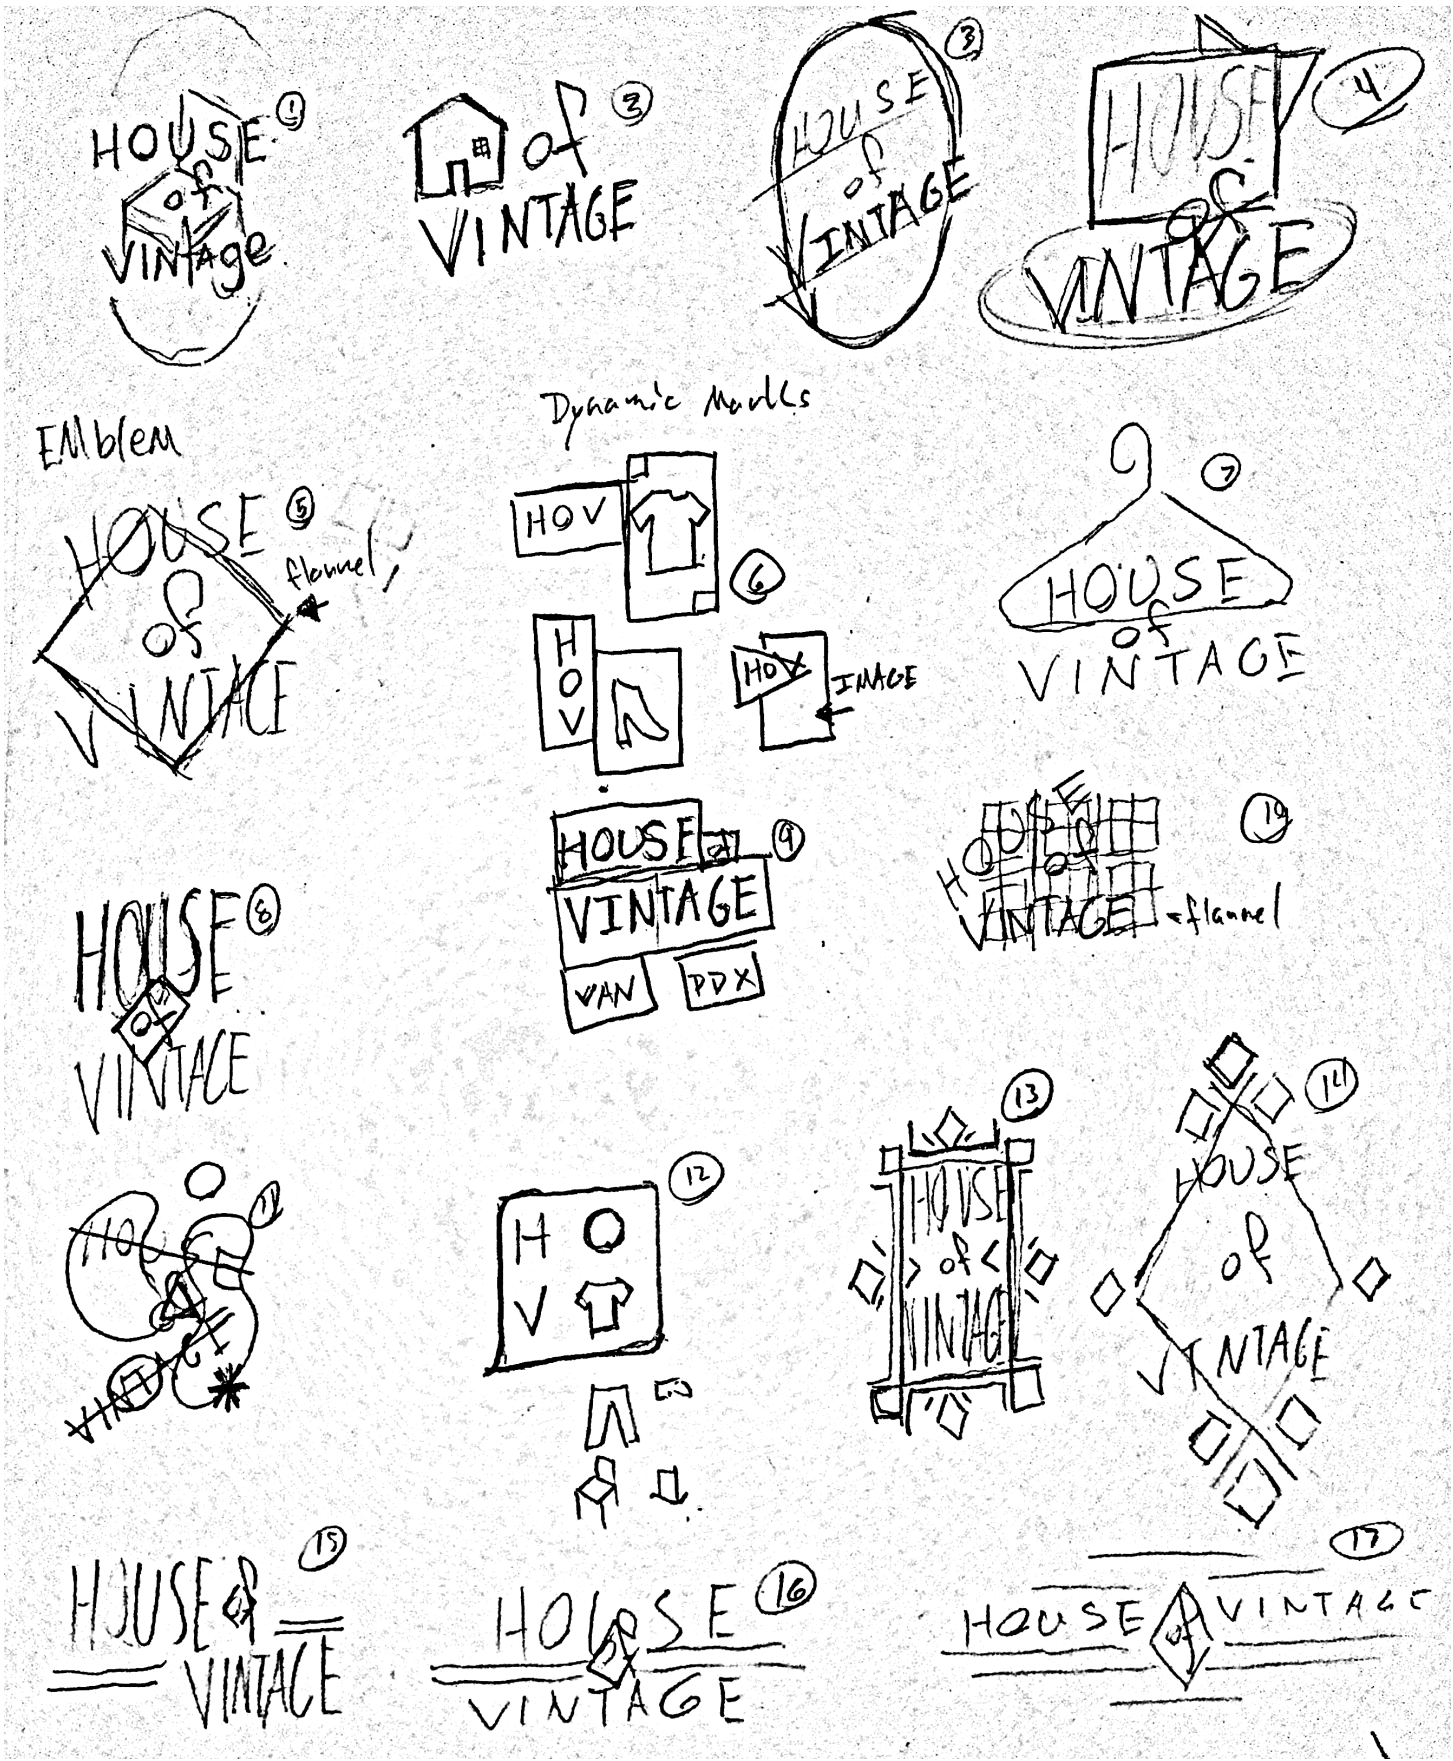 HOUSE
of
VINTAge
1
of
2
VINTAGE
HOUSE
of
VINTAGE
3
HOUSE
of
VINTAGE
4
EMblem
HOUSE
of
VINTAGE
5
flannel
Dynamic Marks
HOV
6
H
O
V
HOV
IMAGE
HOUSE
of
VINTAGE
7
HOUSE
of
VINTAGE
8
HOUSE of
VINTAGE
VAN PDX
9
HOUSE
of
VINTAGE
10
flannel
HOU
VINT
11
H O
V
12
HOUSE
> of <
VINTAGE
13
HOUSE
of
VINTAGE
14
HOUSE of
VINTAGE
15
HOUSE
of
VINTAGE
16
HOUSE of VINTAGE
17